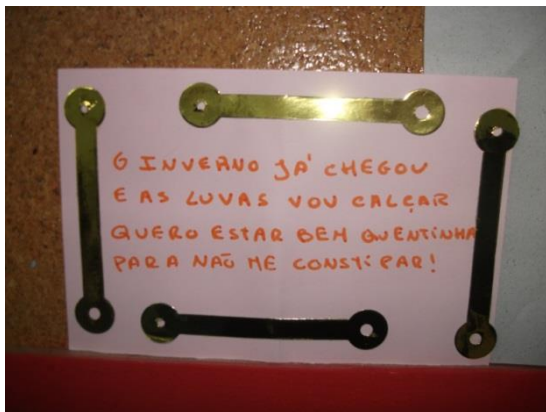 O INVERNO JÁ CHEGOU
E AS LUVAS VOU CALÇAR
QUERO ESTAR BEM QUENTINHA
PARA NÃO ME CONSTIPAR!